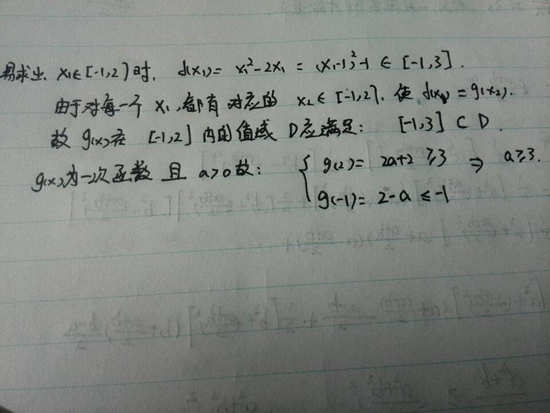 易求出 x₁∈[-1,2]时, f(x₁)= x₁²-2x₁ = (x₁-1)²-1 ∈ [-1,3].
由于对每一个 x₁,都有对应的 x₂∈[-1,2],使 f(x₁)=g(x₂).
故 g(x)在 [-1,2] 内的值域 D应满足: [-1,3]⊂D.
g(x)为一次函数 且 a>0 故: { g(2)= 2a+2 ≥3 ⇒ a≥3.
g(-1)= 2-a ≤-1